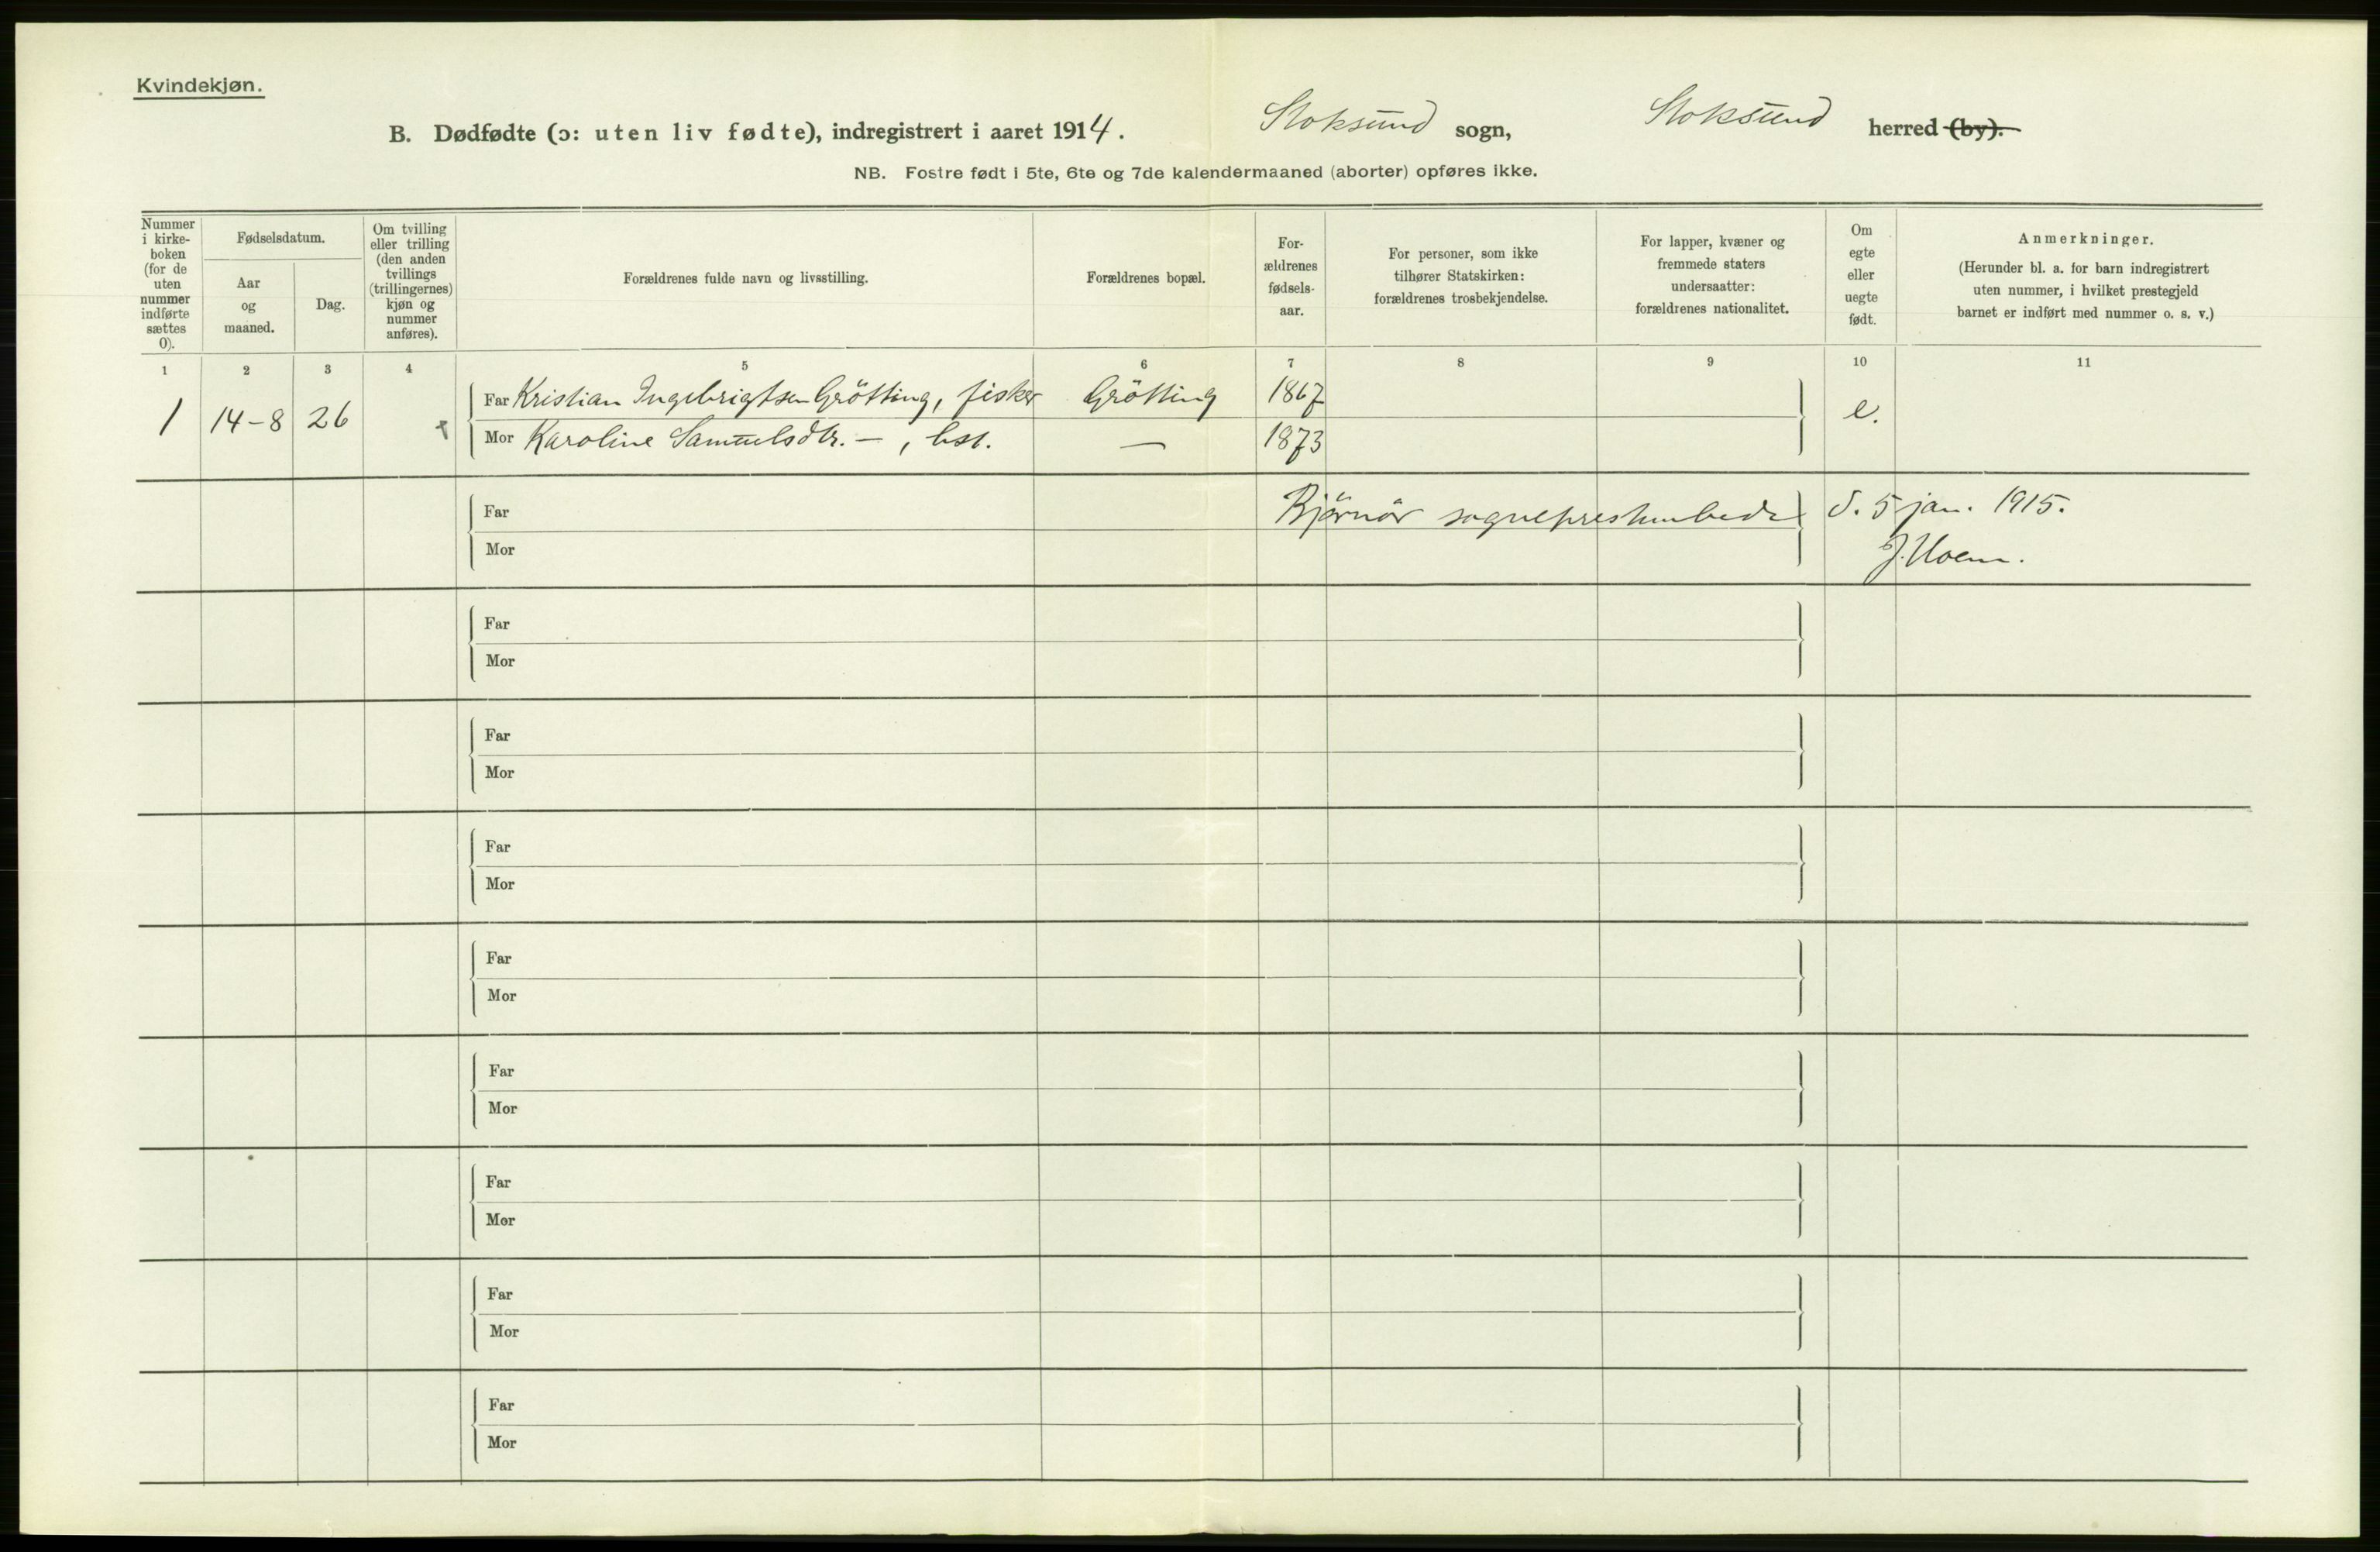 Kvindekjøn.
B. Dødfødte (ɔ: uten liv fødte), indregistrert i aaret 1914. Stoksund sogn, Stoksund herred (by).
NB. Fostre født i 5te, 6te og 7de kalendermaaned (aborter) opføres ikke.
Nummer i kirke-boken (for de uten nummer indførte sættes 0).
Fødselsdatum.
Aar og maaned.
Dag.
Om tvilling eller trilling (den anden tvillings (trillingernes) kjøn og nummer anføres).
Forældrenes fulde navn og livsstilling.
Forældrenes bopæl.
For-ældrenes fødsels-aar.
For personer, som ikke tilhører Statskirken: forældrenes trosbekjendelse.
For lapper, kvæner og fremmede staters undersaatter: forældrenes nationalitet.
Om egte eller uegte født.
Anmerkninger.
(Herunder bl. a. for barn indregistrert uten nummer, i hvilket prestegjeld barnet er indført med nummer o. s. v.)
1 2 3 4 5 6 7 8 9 10 11
1 14-8 26 Far Kristian Ingebrigtsen Grötting, fisker Grötting 1867 e.
Mor Karoline Samuelsdtr. — , hst. — 1873
Far Björnör sogneprestembede d. 5 jan. 1915.
Mor J. Hoem.
Far
Mor
Far
Mor
Far
Mor
Far
Mor
Far
Mor
Far
Mor
Far
Mor
Far
Mor